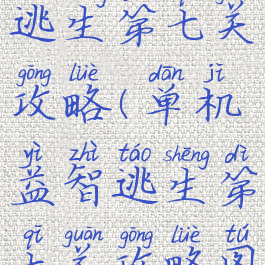 逃生第七关
gōng lüè dān jī
攻略(单机
yì zhì táo shēng dì
益智逃生第
qī guān gōng lüè tú
七关攻略图